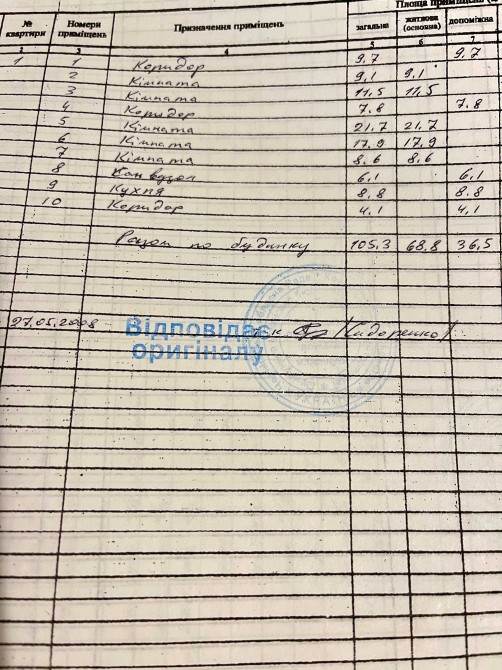 Площа приміщень
№ квартири Номери приміщень Призначення приміщень загальна житлова (основна) допоміжна
1 3 4 5 6 7
1 1 Коридор 9,7 9.7
2 Кімната 9,1 9,1
3 Кімната 11,5 11,5
4 Коридор 7.8 7.8
5 Кімната 21,7 21,7
6 Кімната 17,9 17,9
7 Кімната 8.6 8,6
8 Сан вузол 6,1 6,1
9 Кухня 8,8 8.8
10 Коридор 4,1 4,1
Разом по будинку 105,3 68,8 36,5
27.05.2008 /Сидоренко/
Відповідає
оригіналу